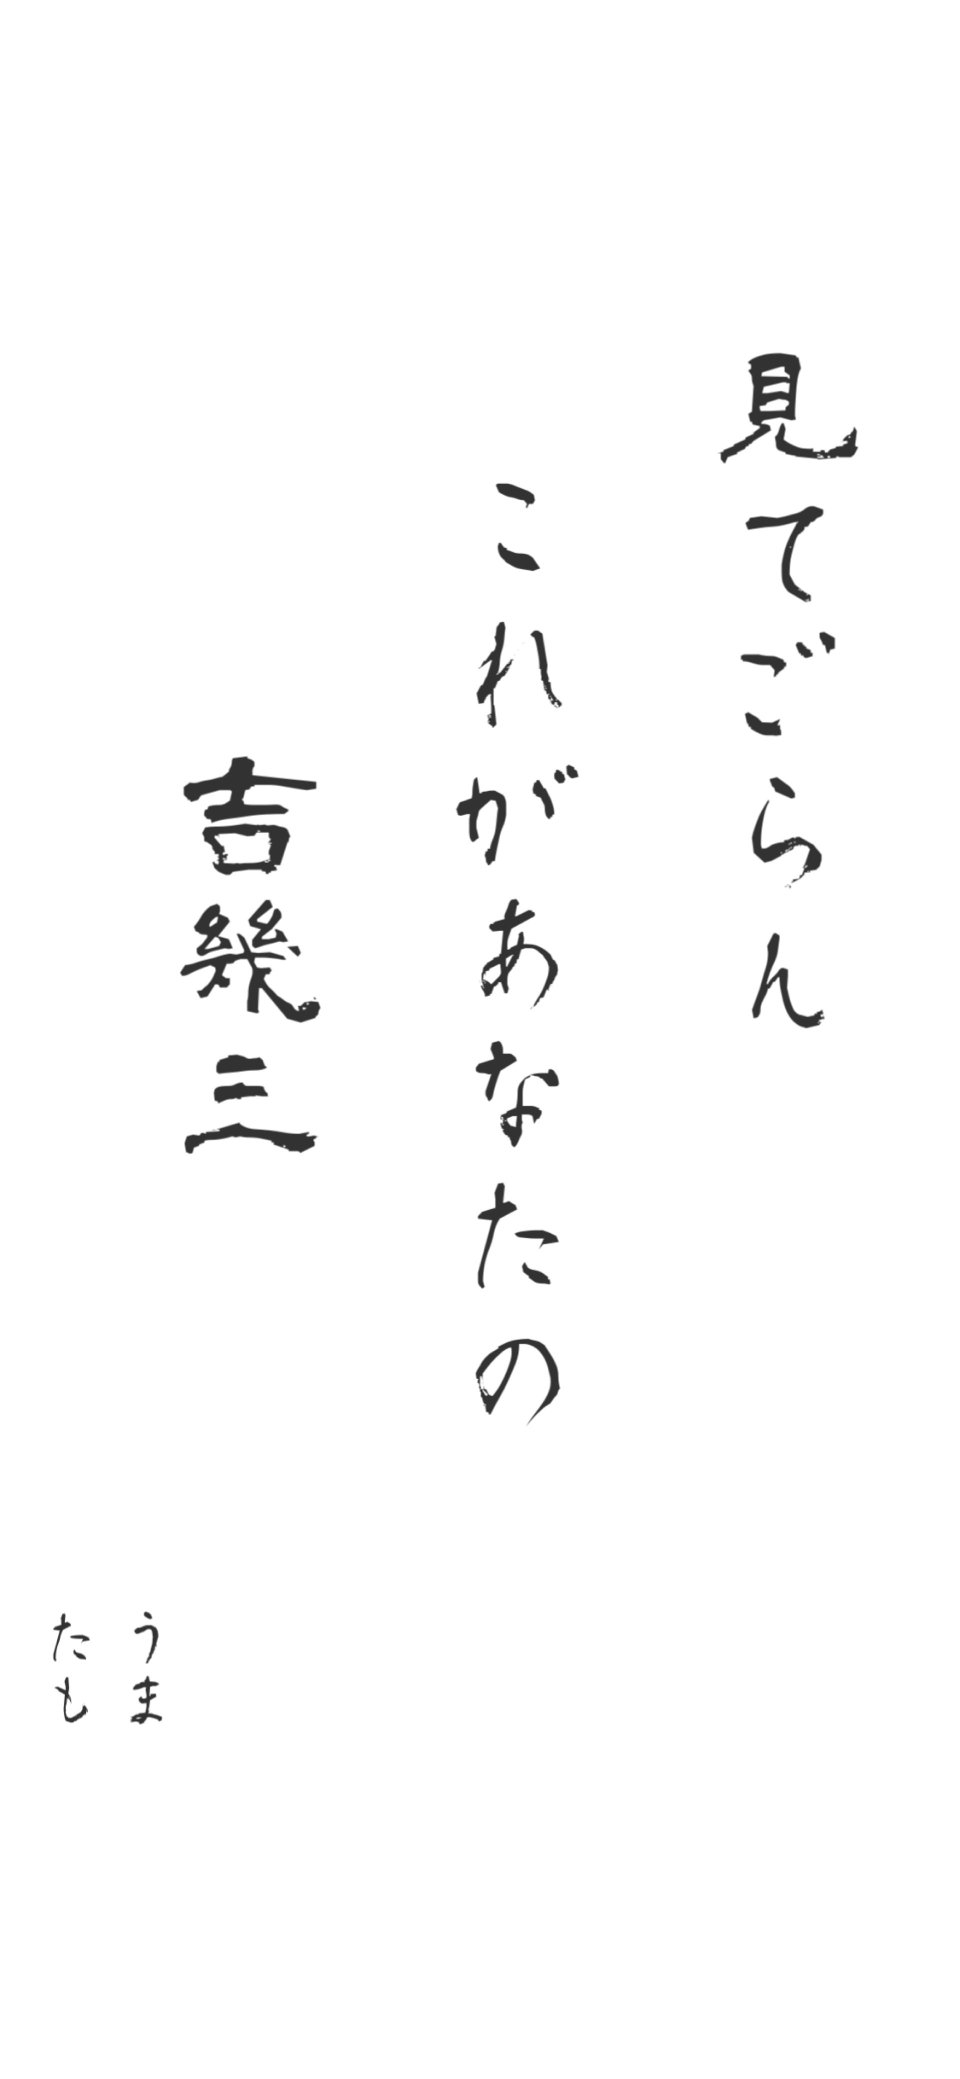 見てごらん
これがあなたの
吉幾三
うま
たも